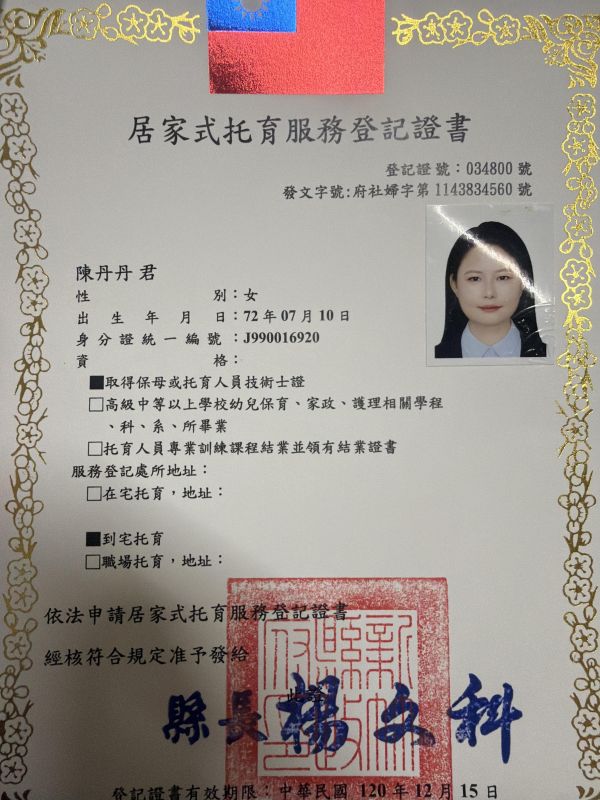 居家式托育服務登記證書
登記證號：034800 號
發文字號:府社婦字第 1143834560 號
陳丹丹 君
性別：女
出生年月日：72 年 07 月 10 日
身分證統一編號：J990016920
資格：
■取得保母或托育人員技術士證
□高級中等以上學校幼兒保育、家政、護理相關學程
、科、系、所畢業
□托育人員專業訓練課程結業並領有結業證書
服務登記處所地址：
□在宅托育，地址：
■到宅托育
□職場托育，地址：
依法申請居家式托育服務登記證書
經核符合規定准予發給
此證
縣長楊文科
登記證書有效期限：中華民國 120 年 12 月 15 日